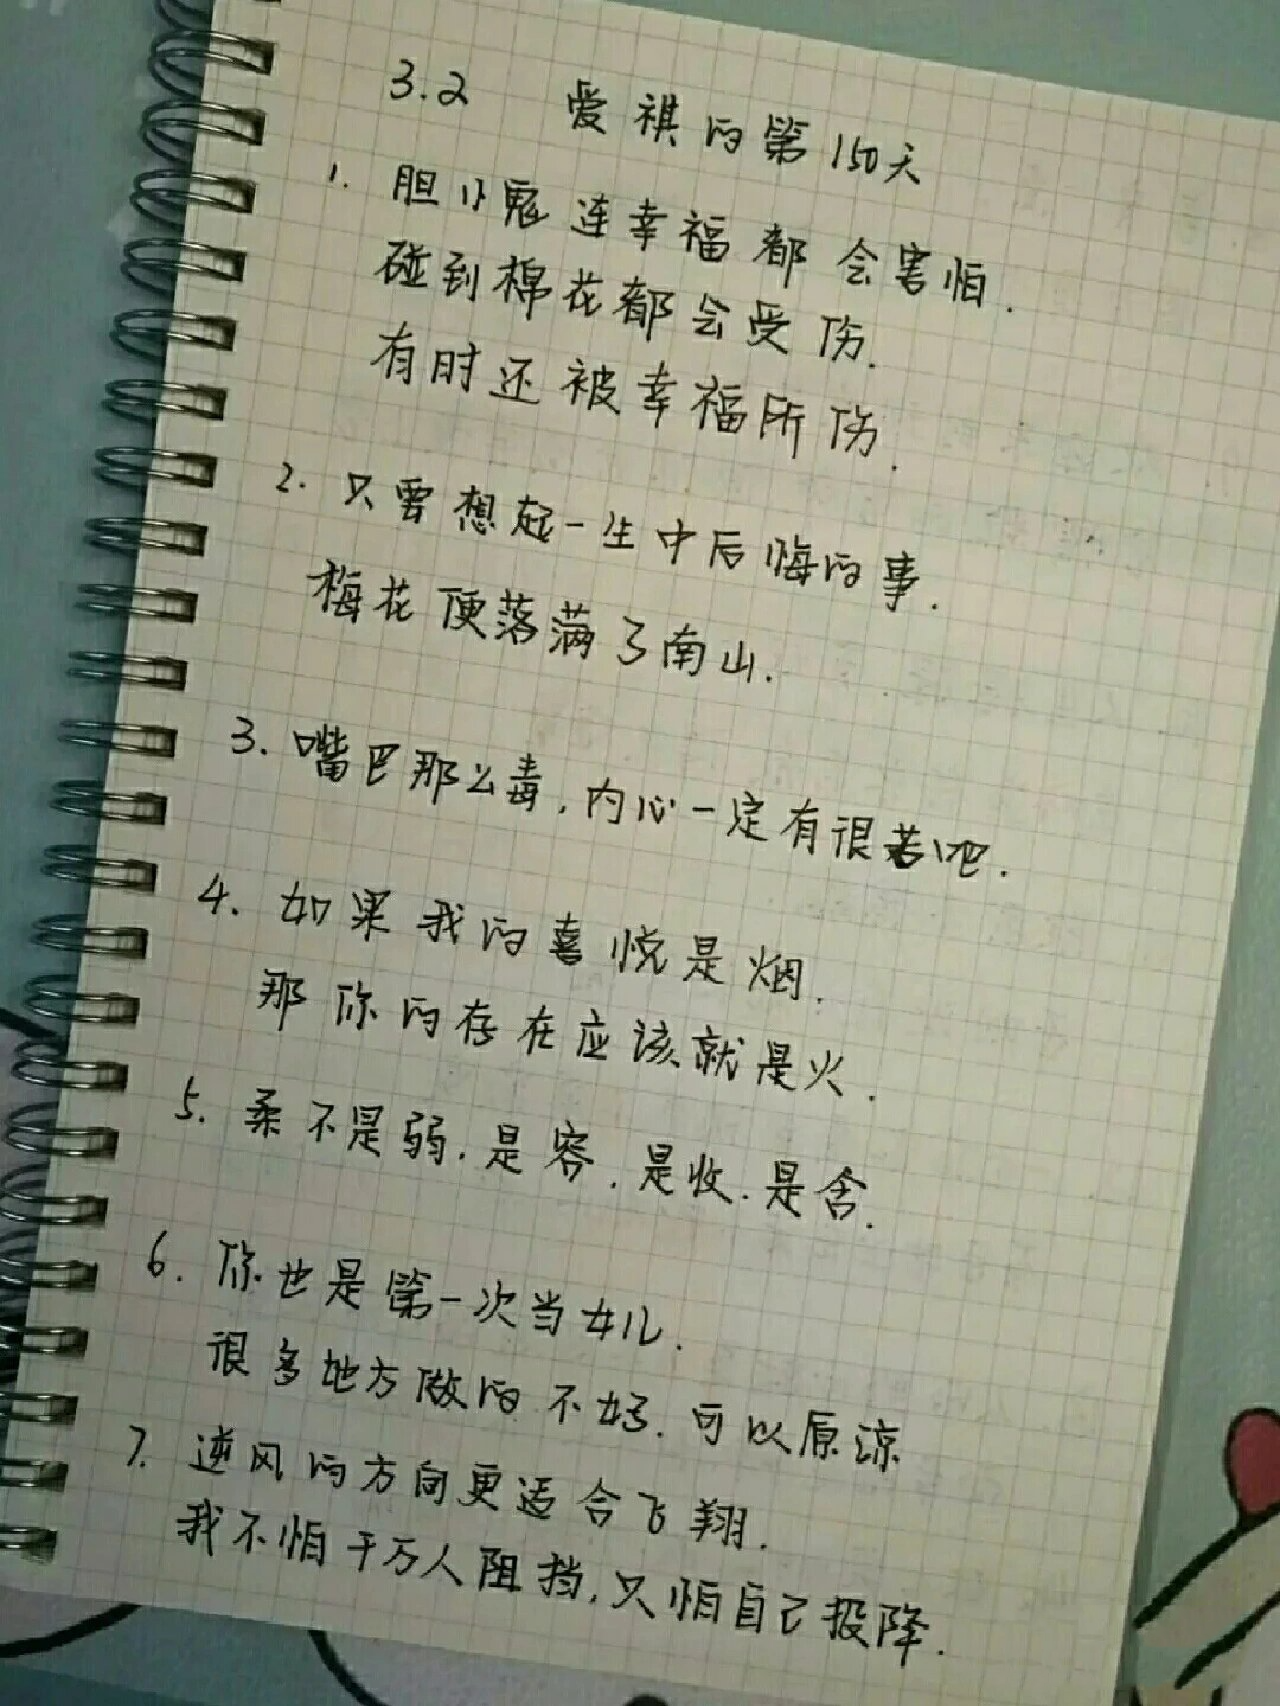 3.2 爱祺的第150天
1. 胆小鬼连幸福都会害怕.
碰到棉花都会受伤.
有时还被幸福所伤.
2. 只要想起一生中后悔的事.
梅花便落满了南山.
3. 嘴巴那么毒,内心一定有很苦吧.
4. 如果我的喜悦是烟.
那你的存在应该就是火.
5. 柔不是弱.是容.是收.是含.
6. 你也是第一次当女儿.
很多地方做的不好.可以原谅
7. 逆风的方向更适合飞翔.
我不怕千万人阻挡,只怕自己投降.